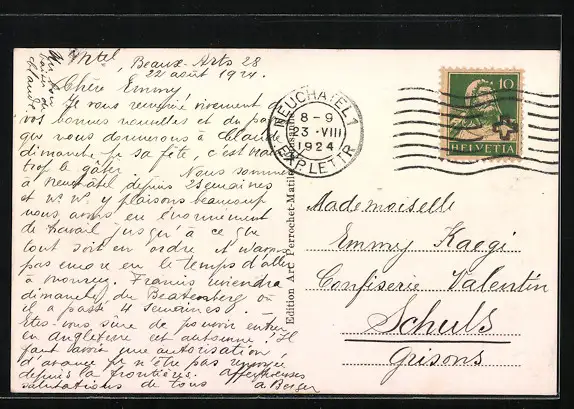 N'tel, Beaux-Arts 28
22 août 1924.
Un bon
baiser de
Claude
Chère Emmy!
Je vous remercie vivement de
vos bonnes nouvelles et du
que vous donnerons à Claude
dimanche p. sa fête, c'est
trop le gâter. Nous sommes
à Neuchâtel depuis 2 semaines
et n. n. y plaisons beaucoup
nous avons eu énormément
de travail jusqu'à ce que
tout soit en ordre et n'avons
pas encore eu le temps d'aller
à Francis reviendra
dimanche du Beatenberg où
il a passé 4 semaines.
Etes-vous sûre de pouvoir entrer
en Angleterre cet automne? Il
faut avoir une autorisation
d'avance p. n'être pas
depuis la frontière. Affectueuses
salutations de tous
A Berger
Edition Art. Perrochet-Matile, Lausanne
NEUCHATEL 1
8-9
23.VIII
1924
EXP. LETTR.
10
HELVETIA
Mademoiselle
Emmy Kaegi
Confiserie Valentin
Schuls
Grisons